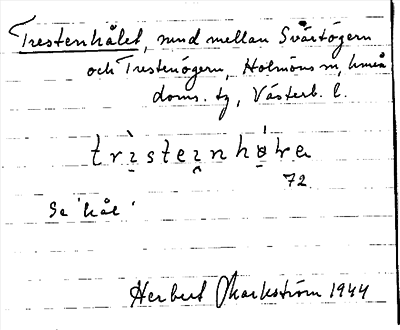 Trestenhålet, sund mellan Svärtögern
och Trestenögern, Holmöns sn, Umeå
doms. tg, Västerb. l.
trìsteinhóle
72
Se 'hål'
Herbert Markström 1944